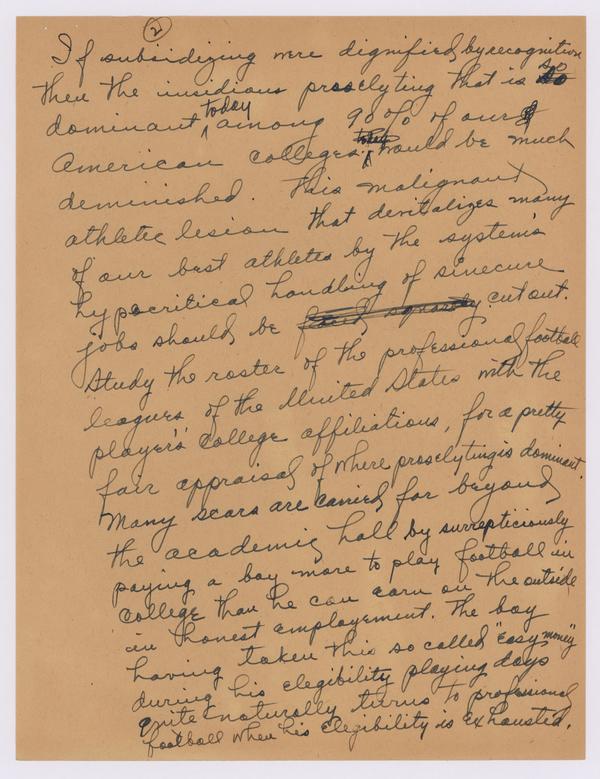 2
If subsidizing were dignified by recognition
then the insidious proselyting that is so
dominant today among 90% of our
American colleges would be much
deminished. This malignant
athletic lesion that devitalizes many
of our best athletes by the system's
hypocritical handling of sinecure
jobs should be faced squarely cut out.
Study the roster of the professional football
leagues of the United States with the
player's college affiliations, for a pretty
fair appraisal of where proselyting is dominant.
Many scars are carried far beyond
the academic hall by surrepticiously
paying a boy more to play football in
college than he can earn on the outside
in honest employement. The boy
having taken this so called "easy money"
during his elegibility playing days
quite naturally turns to professional
football when his elegibility is exhausted.